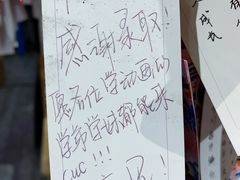 感谢录取
愿各位学动画的
学弟学妹都能来
CUC!!!
成